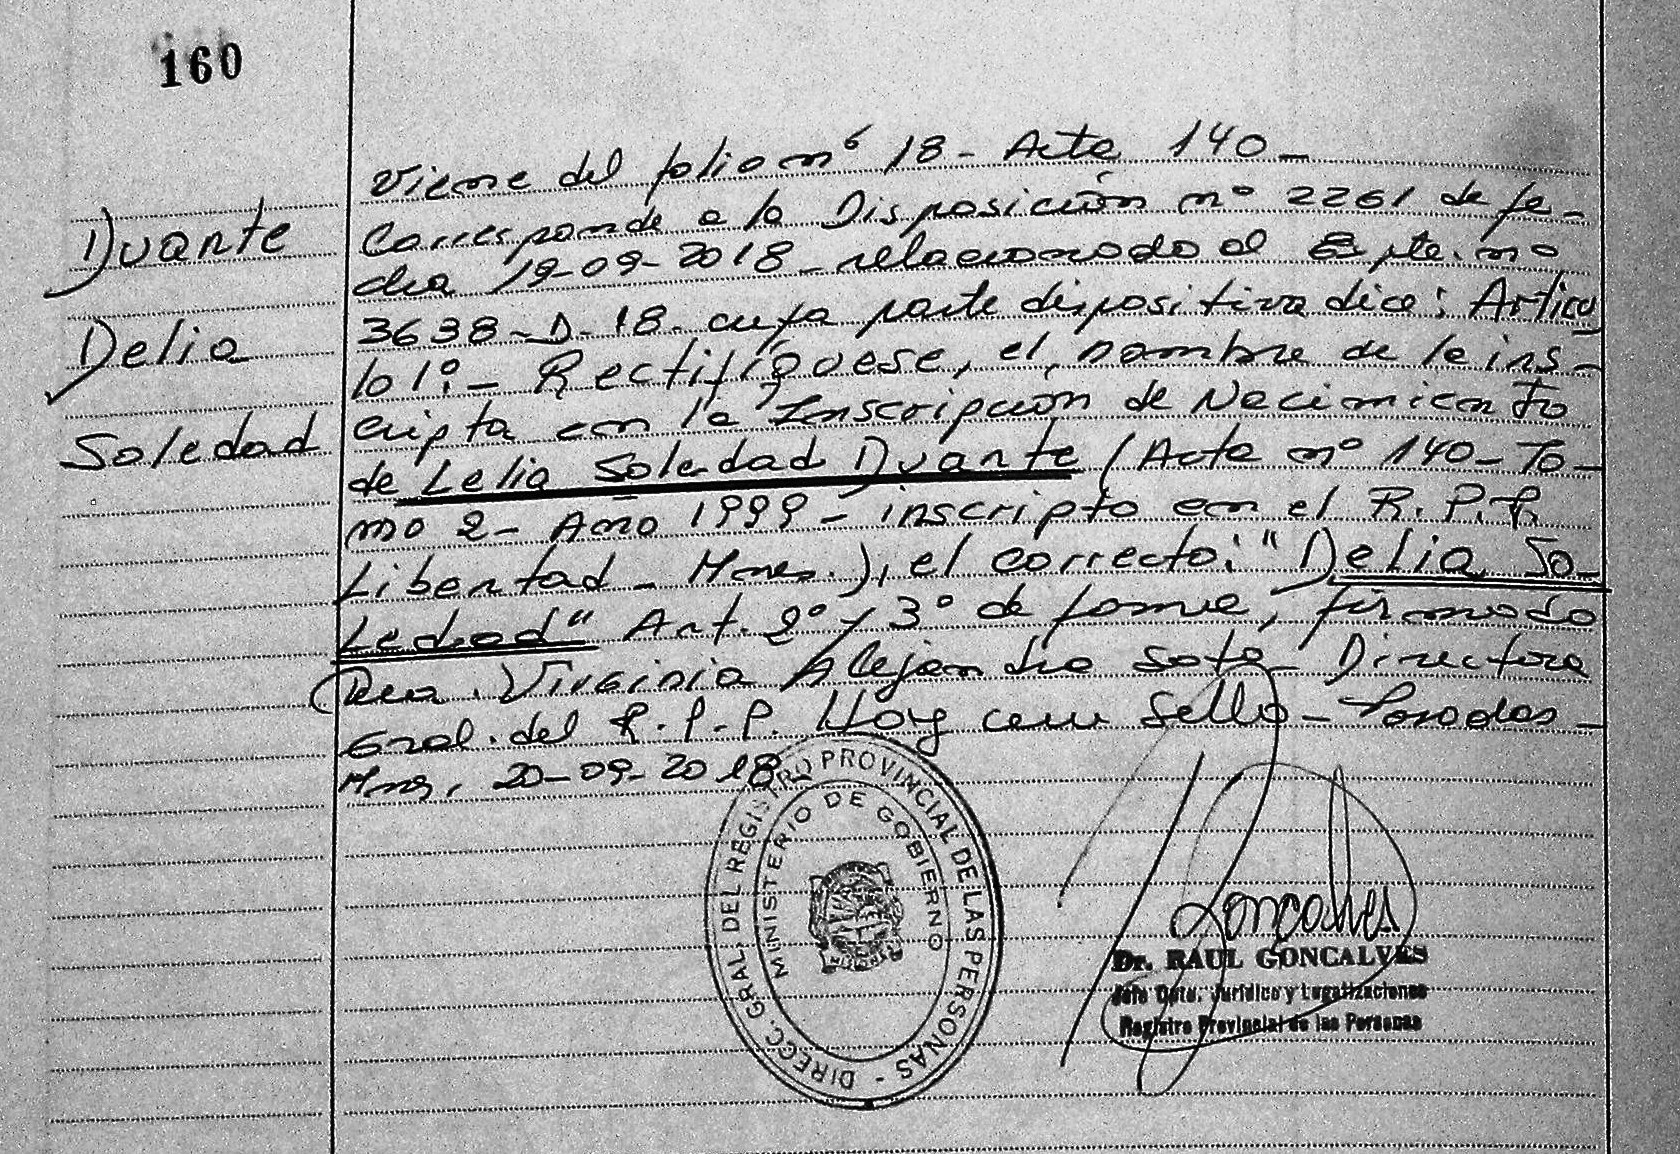 160
Duante
Delia
Soledad
Viene del folio nº 18 - Acta 140 -
Corresponde a la Disposición nº 2261 de fe-
cha 19-09-2018 - relacionado al Expte. nº
3638-D-18. cuya parte dispositiva dice: Artícu
lo 1º:- Rectifíquese, el nombre de la ins-
cripta en la Inscripción de Nacimiento
de Lelia Soledad Duante (Acta nº 140 - To-
mo 2 - Año 1999 - inscripto en el R.P.P.
Libertad - Mnes.), el correcto: "Delia So-
ledad" Art. 2º y 3º de forma, firmado
Dra. Virginia Alejandra Soto - Directora
Gral. del R.P.P. Hoy Sello - Posadas -
Mnes, 20-09-2018
DIRECC. GRAL. DEL REGISTRO PROVINCIAL DE LAS PERSONAS -
MINISTERIO DE GOBIERNO
Goncalves
Dr. RAUL GONCALVES
Jefe Dpto. Jurídico y Legalizaciones
Registro Provincial de las Personas